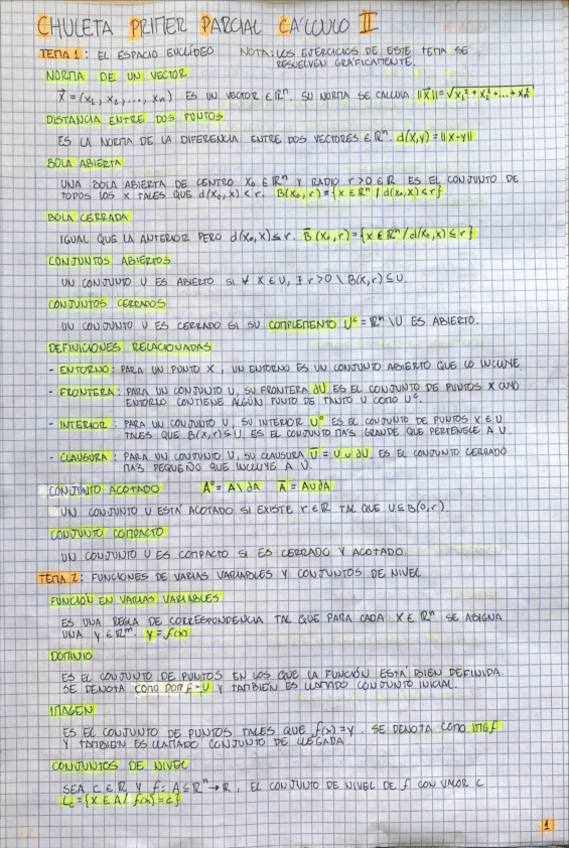 CHULETA PRIMER PARCIAL CÁLCULO II
TEMA 1: EL ESPACIO EUCLÍDEO NOTA: LOS EJERCICIOS DE ESTE TEMA SE
RESUELVEN GRÁFICAMENTE.
NORMA DE UN VECTOR
X⃗ = (x₁, x₂, ..., xₙ) ES UN VECTOR ∈ ℝⁿ. SU NORMA SE CALCULA ||X⃗|| = √x₁² + x₂² + ... + xₙ²
DISTANCIA ENTRE DOS PUNTOS
ES LA NORMA DE LA DIFERENCIA ENTRE DOS VECTORES ∈ ℝⁿ. d(x,y) = ||x-y||
BOLA ABIERTA
UNA BOLA ABIERTA DE CENTRO X₀ ∈ ℝⁿ Y RADIO r>0 ∈ ℝ ES EL CONJUNTO DE
TODOS LOS X TALES QUE d(x₀,x) < r. B(x₀,r) = {x ∈ ℝⁿ / d(x₀,x) < r}
BOLA CERRADA
IGUAL QUE LA ANTERIOR PERO d(x₀,x) ≤ r. B̄(x₀,r) = {x ∈ ℝⁿ / d(x₀,x) ≤ r}
CONJUNTOS ABIERTOS
UN CONJUNTO U ES ABIERTO SI ∀ X ∈ U, ∃ r > 0 \ B(x,r) ⊆ U.
CONJUNTOS CERRADOS
UN CONJUNTO U ES CERRADO SI SU COMPLEMENTO Uᶜ = ℝⁿ \ U ES ABIERTO.
DEFINICIONES RELACIONADAS
- ENTORNO: PARA UN PUNTO X, UN ENTORNO ES UN CONJUNTO ABIERTO QUE LO INCLUYE
- FRONTERA: PARA UN CONJUNTO U, SU FRONTERA ∂U ES EL CONJUNTO DE PUNTOS X CUYO
ENTORNO CONTIENE ALGÚN PUNTO DE TANTO U COMO Uᶜ.
- INTERIOR: PARA UN CONJUNTO U, SU INTERIOR U° ES EL CONJUNTO DE PUNTOS X ∈ U
TALES QUE B(x,r) ⊆ U. ES EL CONJUNTO MÁS GRANDE QUE PERTENECE A U.
- CLAUSURA: PARA UN CONJUNTO U, SU CLAUSURA Ū = U ∪ ∂U. ES EL CONJUNTO CERRADO
MÁS PEQUEÑO QUE INCLUYE A U.
CONJUNTO ACOTADO A° = A \ ∂A Ā = A ∪ ∂A
UN CONJUNTO U ESTÁ ACOTADO SI EXISTE r ∈ ℝ TAL QUE U ⊆ B(0,r).
CONJUNTO COMPACTO
UN CONJUNTO U ES COMPACTO SI ES CERRADO Y ACOTADO.
TEMA 2: FUNCIONES DE VARIAS VARIABLES Y CONJUNTOS DE NIVEL
FUNCIÓN EN VARIAS VARIABLES
ES UNA REGLA DE CORRESPONDENCIA TAL QUE PARA CADA X ∈ ℝⁿ SE ASIGNA
UNA Y ∈ ℝᵐ. y = f(x)
DOMINIO
ES EL CONJUNTO DE PUNTOS EN LOS QUE LA FUNCIÓN ESTÁ BIEN DEFINIDA.
SE DENOTA COMO DOM f = U Y TAMBIÉN ES LLAMADO CONJUNTO INICIAL.
IMAGEN
ES EL CONJUNTO DE PUNTOS TALES QUE f(x) = y. SE DENOTA COMO IMG f
Y TAMBIÉN ES LLAMADO CONJUNTO DE LLEGADA.
CONJUNTOS DE NIVEL
SEA C ∈ ℝ Y f: A ⊆ ℝⁿ → ℝ, EL CONJUNTO DE NIVEL DE f CON VALOR C
L꜀ = {x ∈ A / f(x) = c}
1